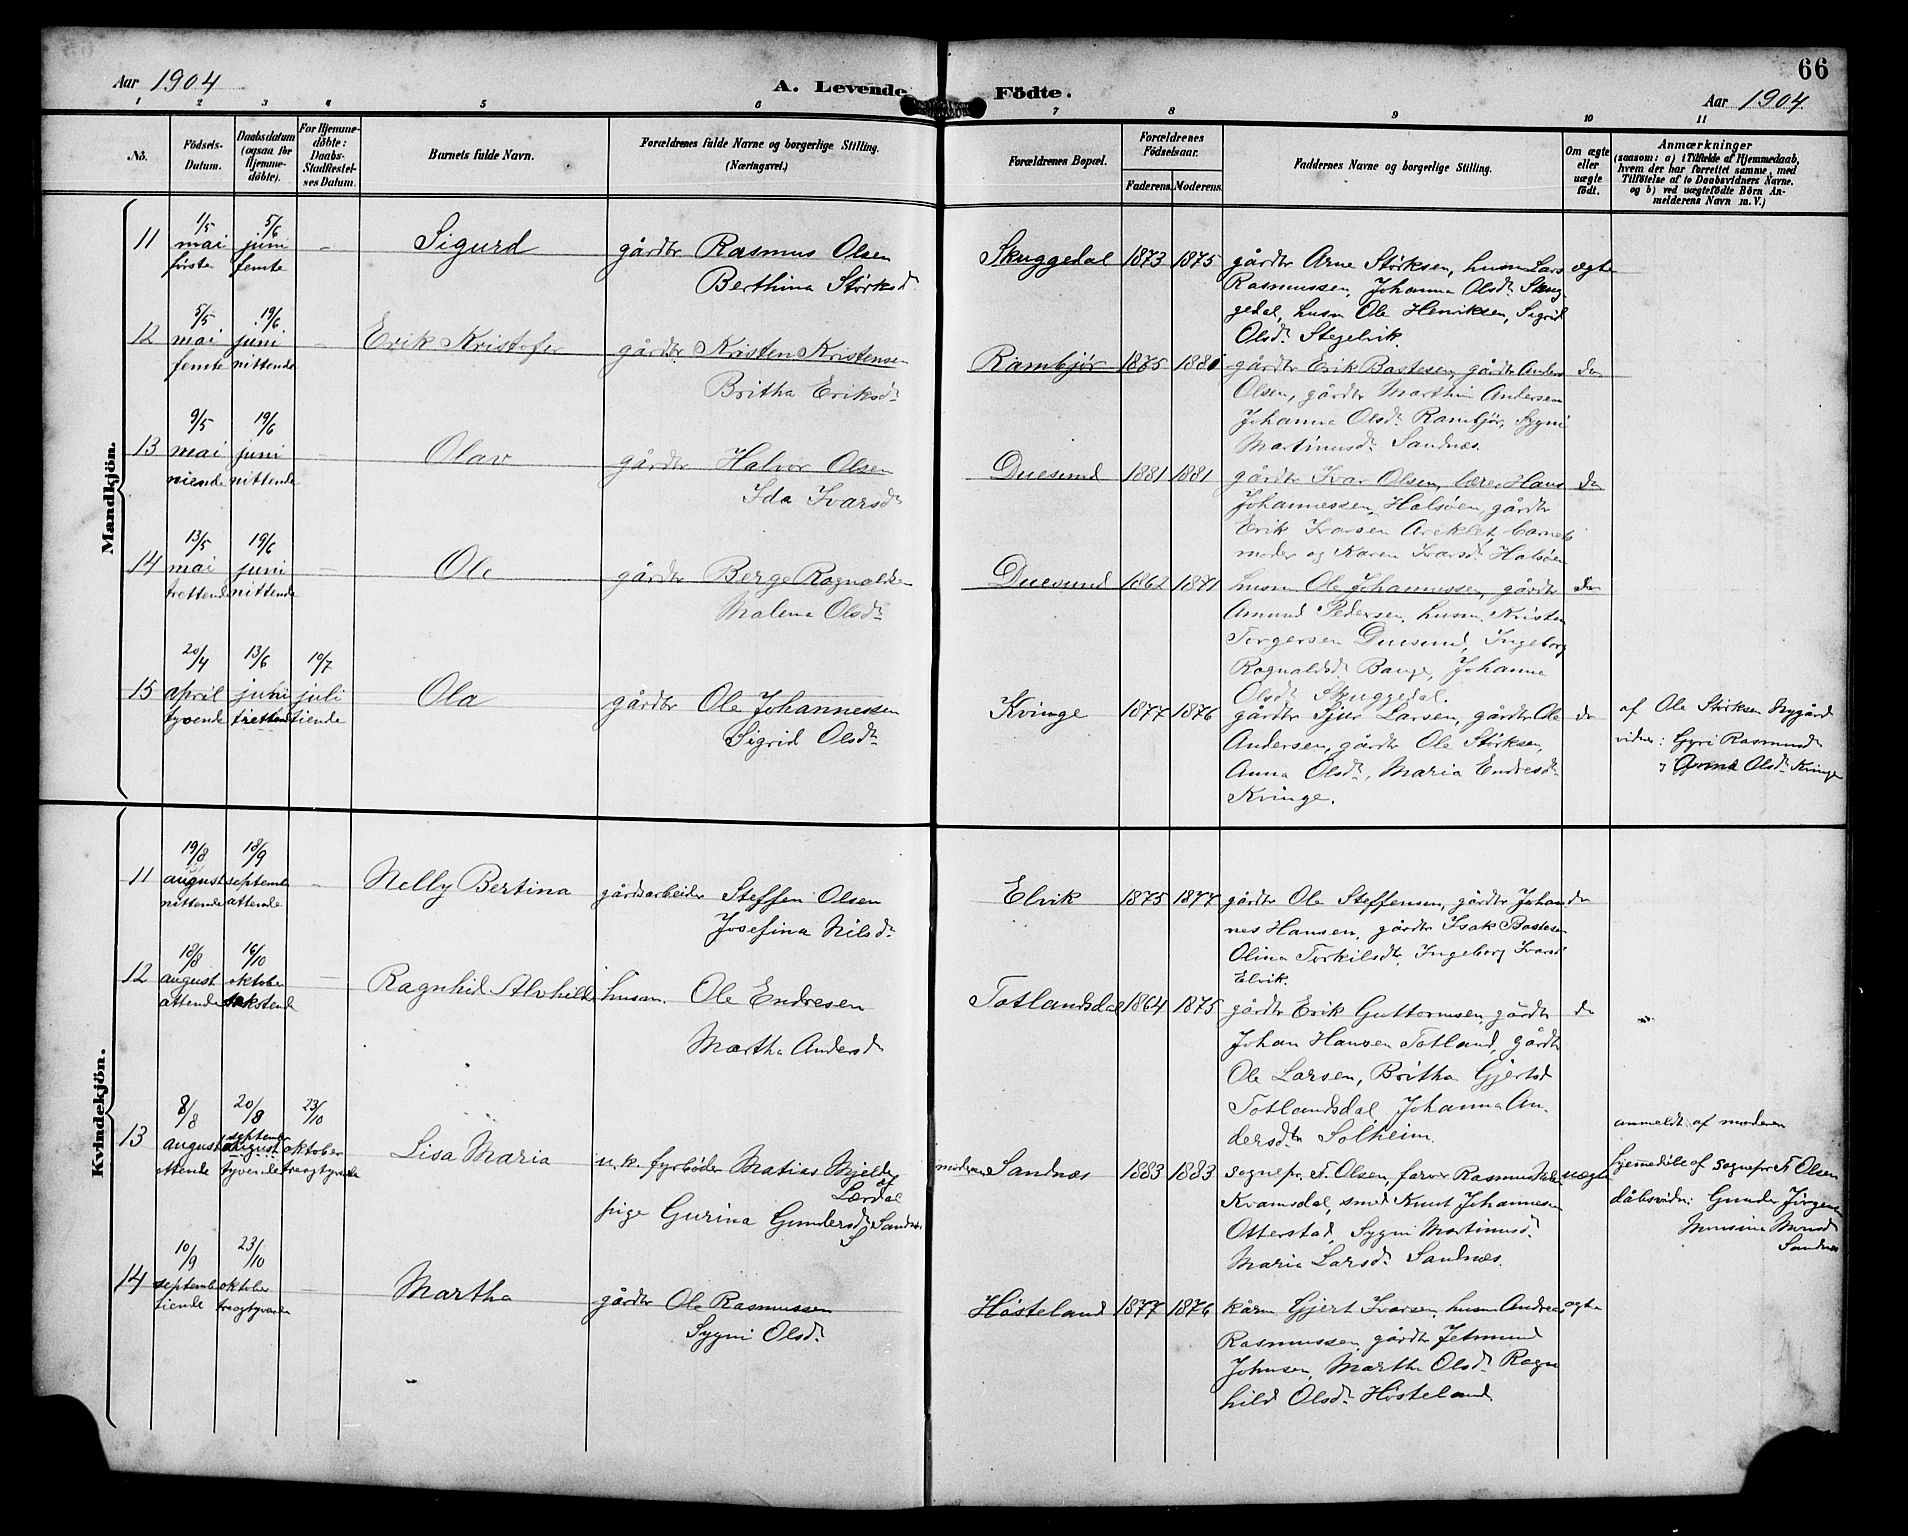 66
Aar 1904
A. Levende Födte.
Aar 1904.
1 2 3 4 5 6 7 8 9 10 11
No.
Födsels-
Datum.
Daabsdatum
(ogsaa for
Hjemme-
döbte).
For Hjemme-
döbte:
Daabs-
Stadfæstel-
ses Datum.
Barnets fulde Navn.
Forældrenes fulde Navne og borgerlige Stilling.
(Næringsvei.)
Forældrenes Bopæl.
Forældrenes
Födselsaar.
Faderens. Moderens.
Faddernes Navne og borgerlige Stilling.
Om ægte
eller
uægte
födt.
Anmærkninger
(saasom: a) i Tilfælde af Hjemmedaab,
hvem der har forrettet samme, med
Tilföielse af to Daabsvidners Navne,
og b) ved uægtefödte Börn An-
melderens Navn m. V.)
Mandkjön.
11
1/5
mai
første
5/6
juni
femte
-
Sigurd
gårdbr Rasmus Olsen
Berthina Størksd.
Skuggedal
1873
1875
gårdbr Arne Størksen, husm Lars
Rasmussen, Johanna Olsdr Skug-
gedal, husm Ole Henriksen, Sigrid
Olsdr Stegelvik.
ægte
12
5/5
mai
femte
19/6
juni
nittende
-
Erik Kristofer
gårdbr Kristen Kristensen
Britha Eriksdr
Rambjør
1875
1880
gårdbr Erik Bastesen, gårdbr Anders
Olsen, gårdbr Marthin Andersen
Johanna Olsdr Rambjør, Sygni
Martinusdr Sandnæs.
do
13
9/5
mai
niende
19/6
juni
nittende
-
Olav
gårdbr Halvor Olsen
Ida Ivarsdr
Duesund
1881
1881
gårdbr Ivar Olsen, lærer Hans
Johannessen, Halsøen, gårdbr
Erik Ivarsen barnets
moder og Karen Ivarsdr Halsøen
do
14
13/5
mai
trettende
19/6
juni
nittende
-
Ole
gårdbr Berge Ragnaldsen
Malena Olsdr
Duesund
1862
1871
husm Ole Johannessen, gårdbr
Amund Pedersen, husm. Kristen
Torgersen Duesund, Ingeborg
Ragnaldsdr Bauge, Johanne
Olsdr Skuggedal.
do
15
20/4
april
tyvende
13/6
juni
tretten
10/7
juli
tiende
Ola
gårdbr Ole Johannessen
Sigrid Olsdr
Kvinge
1877
1876
gårdbr Sjur Larsen, gårdbr Ole
Andersen, gårdbr Ole Størksen,
Anna Olsdr, Maria Endresdr
Kvinge.
do
af Ole Størksen Nygård
vidner: Gyri Rasmusdr
Anna Olsdr Kvinge
Kvindekjön.
11
19/8
august
nittende
18/9
septembr
attende
-
Nelly Bertina
gårdsarbeider Steffen Olsen
Josefina Nilsdr
Elvik
1875
1877
gårdbr Ole Steffensen, gårdbr Johan-
nes Hansen, gårdbr Isak Bastesen
Olina Torkilsdr, Ingeborg Ivarsd
Elvik.
do
12
18/8
august
attende
16/10
oktober
sekstende
-
Ragnhid Alvhilda
husm. Ole Endresen
Martha Andersdr
Totlandsdal
1864
1875
gårdbr Erik Guttormsen, gårdbr
Johan Hansen Totland, gårdbr
Ole Larsen, Britha Gjertsd
Totlandsdal, Johanna An-
dersdtr Solheim.
do
13
8/8
august
ottende
20/8
septembr
august
tyvende
23/10
oktober
treogtyvende
Lisa Maria
u.k. fyrbøder Matias Mjelde
af
Lærdal
pige Gurina Gundersdr Sandnes
moderens Sandnæs
1883
1883
sognepr. F. Olsen, farver Rasmus
Kvamsdal, smed Knut Johannesen
Otterstad, Sygni Martinusdr
Maria Larsdr Sandnæs.
uægte
anmeldt af moderen
hjemmedøbt af sognepr F. Olsen
dåbsvidn: Gunder Jørgensen
Monsina Monsdr
Sandnes
14
10/9
septembr
tiende
23/10
oktober
treogtyvende
-
Martha
gårdbr Ole Rasmussen
Sygni Olsdr
Høsteland
1877
1876
kårm Gjert Ivarsen, husm Andreas
Rasmussen, gårdbr Jetmund
Johnsen, Martha Olsdr Ragn-
hild Olsdr Høsteland
ægte